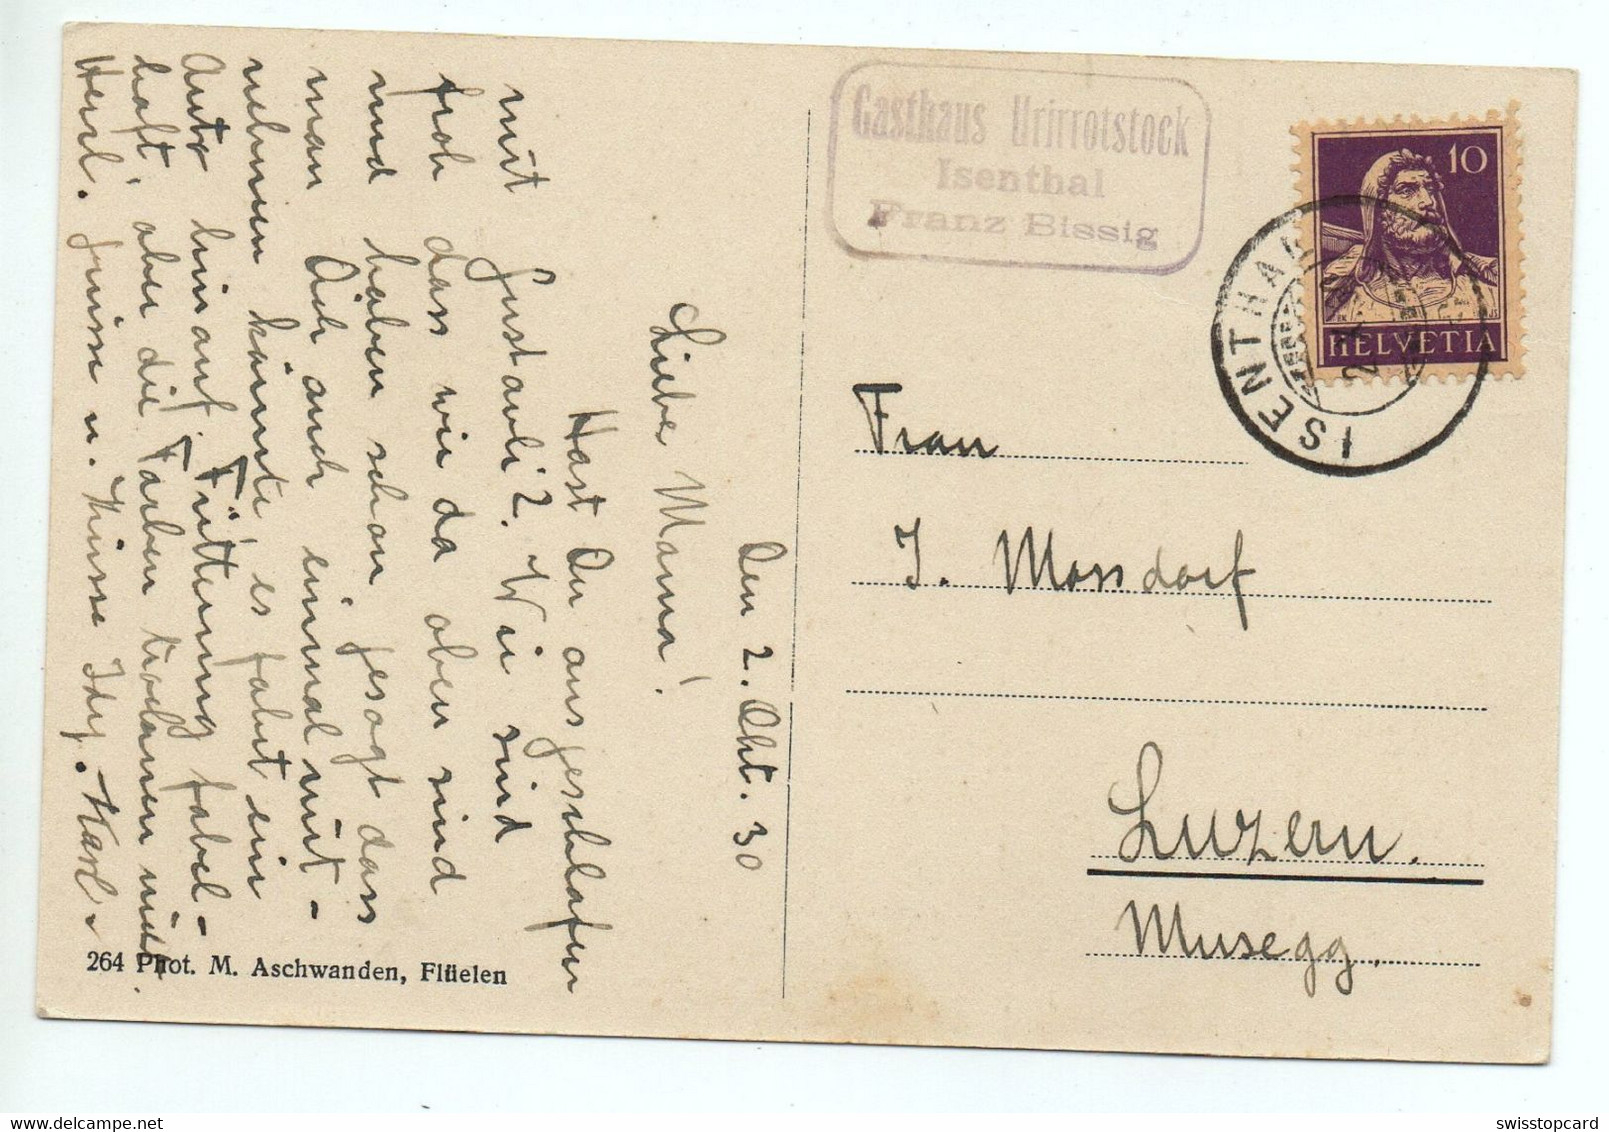 Den 2. Okt. 30
Liebe Mama!
Hast Du ausgeschlafen
mit Gustavli?. Wir sind
froh dass wir da oben sind
und haben schon gesagt dass
man Dich auch einmal mit-
nehmen könnte es fährt ein
Auto hinauf. Fütterung fabel-
haft, aber die Farben trocknen nicht.
Herzl. Grüsse u. Küsse Idy. Karl.
264 Phot. M. Aschwanden, Flüelen
Gasthaus Urirotstock
Isenthal
Franz Bissig
10
HELVETIA
ISENTHAL
Frau
J. Mossdorf
Luzern.
Musegg.
swisstopcard